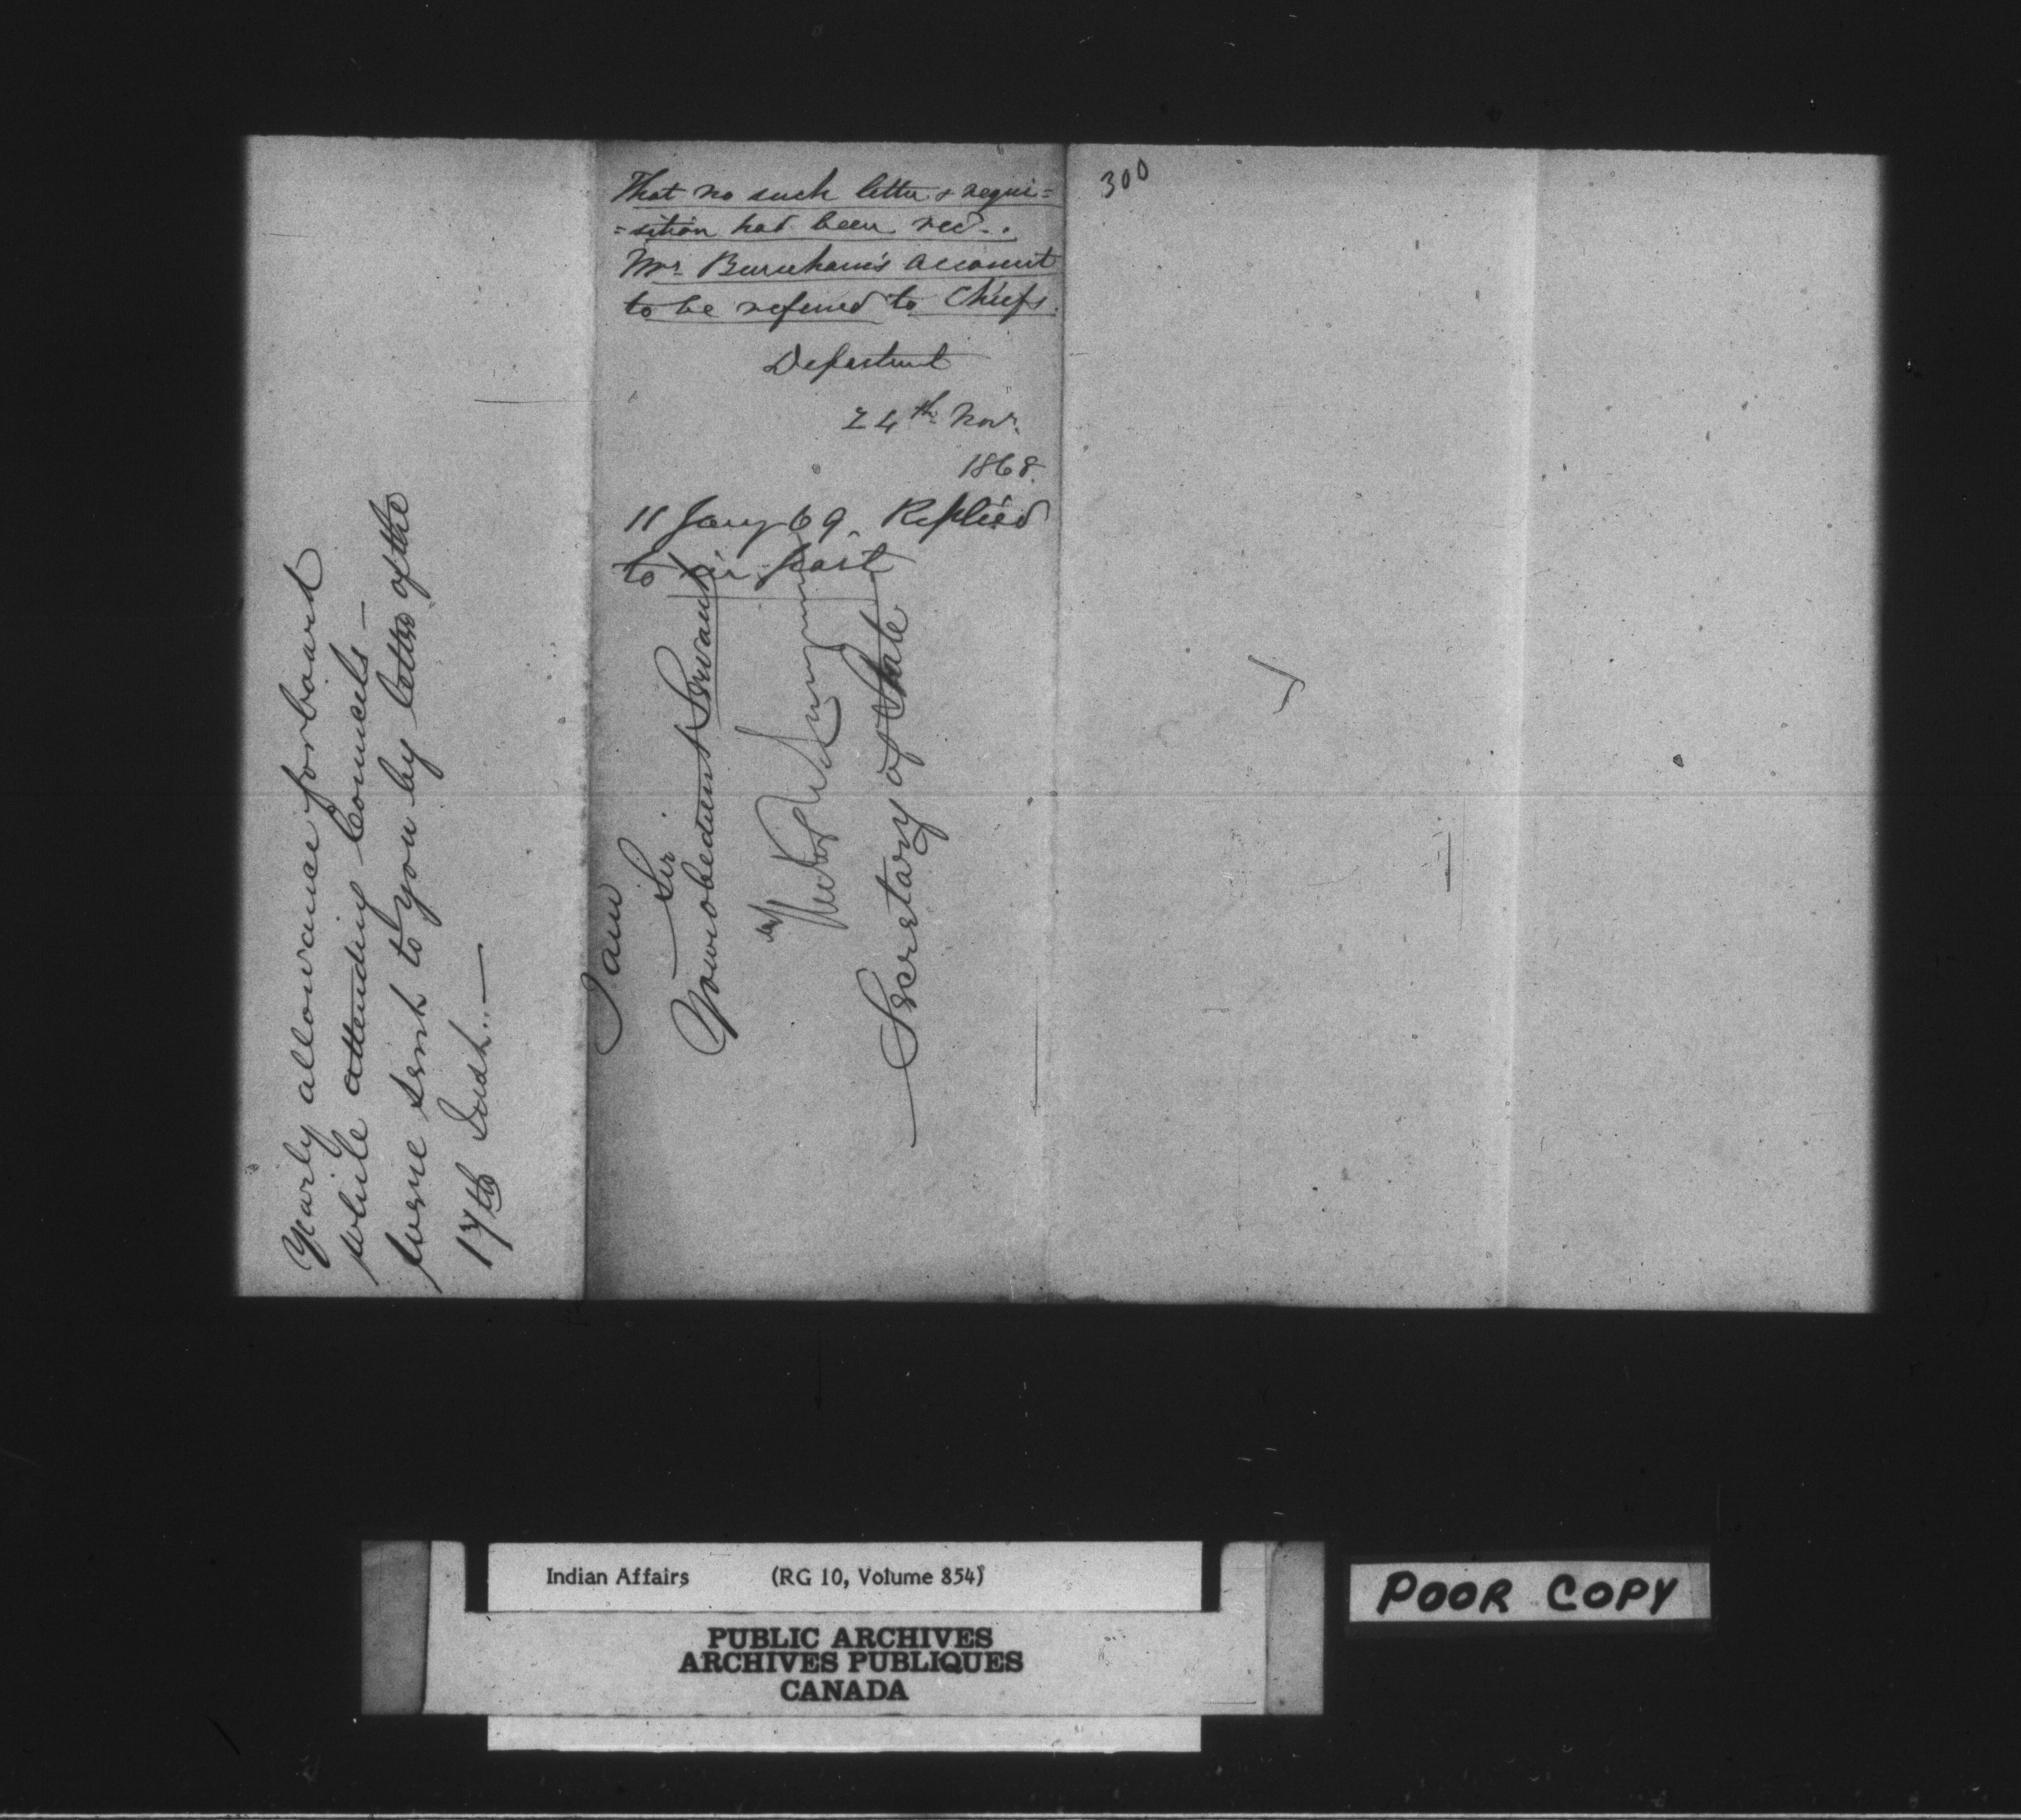 Yearly allowance for board
while attending Councils —
were sent to you by letter of the
17th Inst. —
I am
Sir
Your obedient Servant
Secretary of State
That no such letter & requi=
=sition had been recd..
Mr. Burnham's account
to be referred to Chiefs.
Department
24th Novr.
1868.
11 Jany 69. Replied
to in part
300
Indian Affairs (RG 10, Volume 854)
PUBLIC ARCHIVES
ARCHIVES PUBLIQUES
CANADA
POOR COPY